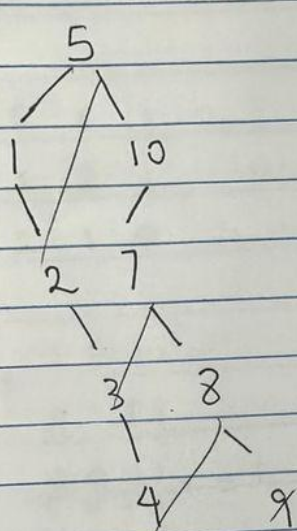 5
1 10
2 7
3 8
4 9